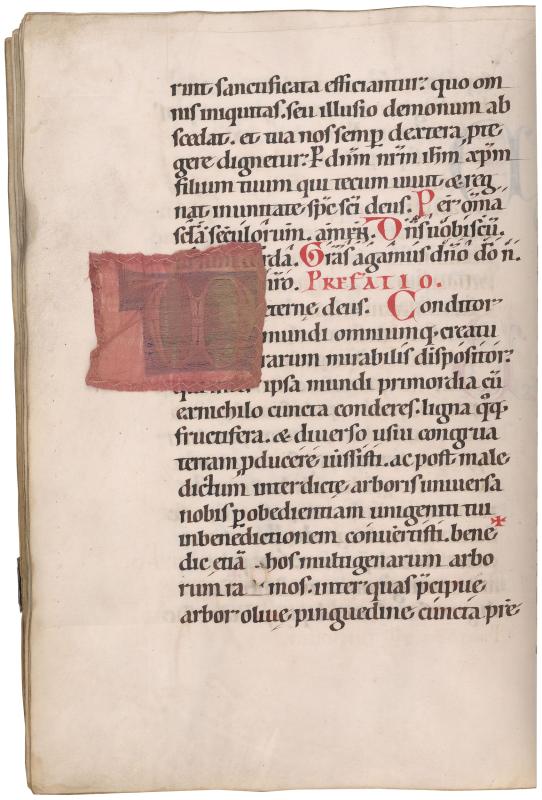 rint sanctificata efficiantur: quo om
nis iniquitas. seu illusio demonum ab
scedat. et tua nos semp dextera pte
gere dignetur: P dnm nrm ihm xpm
filium tuum qui tecum uiuit & reg
nat in unitate spc sci deus. Per oma
scla seculorum. amen. Dns uobiscu.
corda. Gras agamus dno do n.
PREFATIO.
eterne deus. Conditor
mundi omniumq. creatu
rarum mirabilis dispositor:
ipsa mundi primordia cu
ex nichilo cuncta conderes. ligna qq
fructifera. & diuerso usui congrua
terram pducere iussisti. ac post male
dictum interdicte arboris uniuersa
nobis p obedientiam unigeniti tui
in benedictionem conuertisti. bene
dic etia hos multigenarum arbo
rum ramos. inter quas pcipue
arbor oliue pinguedine cuncta pre